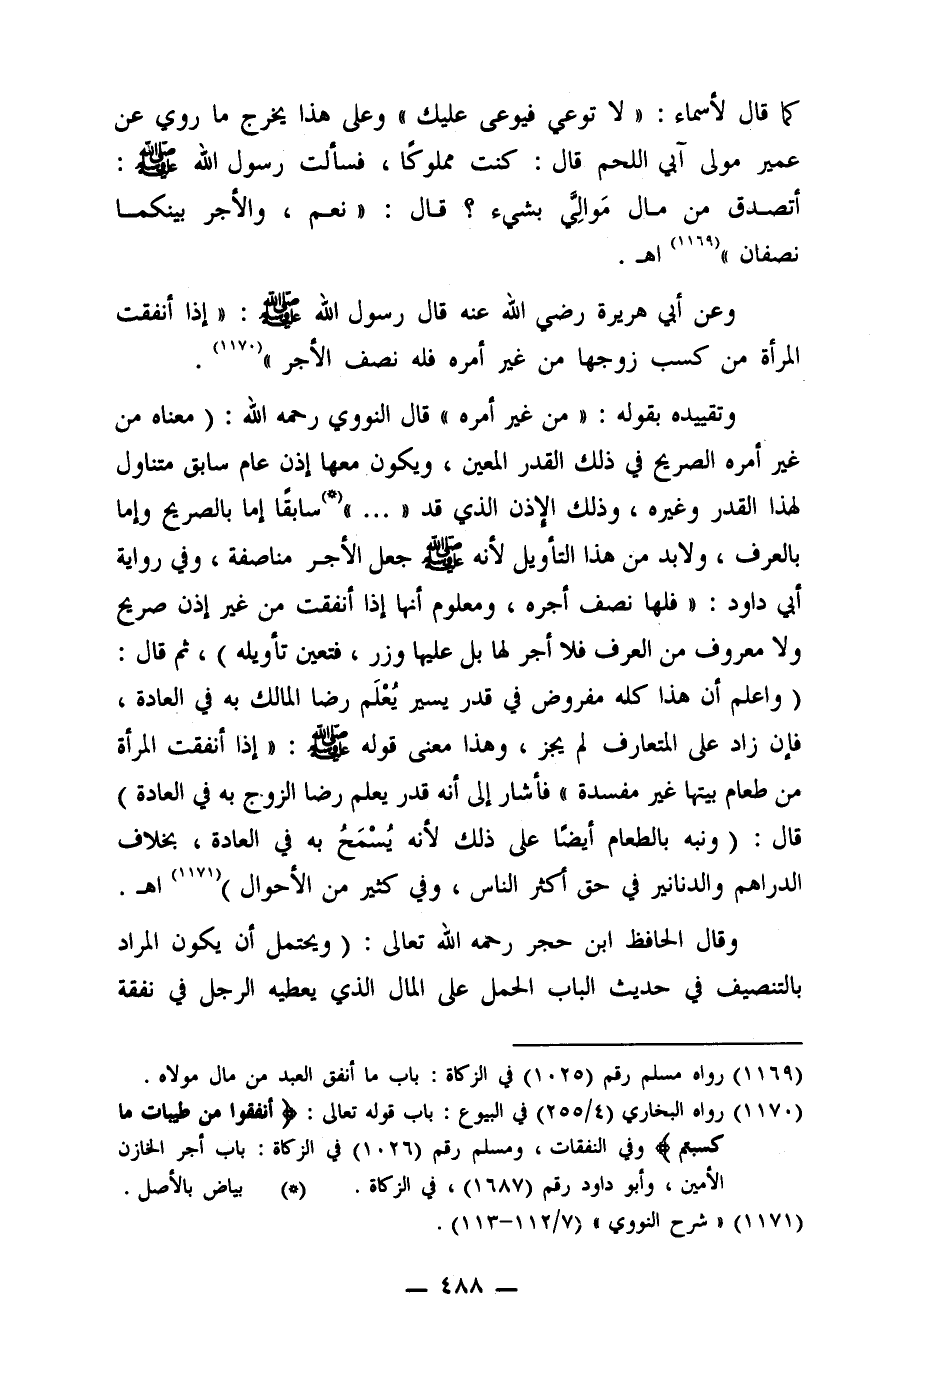 كما قال لأسماء : « لا توعي فيوعى عليك » وعلى هذا يخرج ما روي عن
عمير مولى آبي اللحم قال : كنت مملوكًا ، فسألت رسول الله ﷺ :
أتصدق من مال مَوالِيَّ بشيء ؟ قال : « نعم ، والأجر بينكما
نصفان »(١١٦٩) اهـ .
وعن أبي هريرة رضي الله عنه قال رسول الله ﷺ : « إذا أنفقت
المرأة من كسب زوجها من غير أمره فله نصف الأجر »(١١٧٠) .
وتقييده بقوله : « من غير أمره » قال النووي رحمه الله : ( معناه من
غير أمره الصريح في ذلك القدر المعين ، ويكون معها إذن عام سابق متناول
لهذا القدر وغيره ، وذلك الإذن الذي قد « ... »(*) سابقًا إما بالصريح وإما
بالعرف ، ولابد من هذا التأويل لأنه ﷺ جعل الأجر مناصفة ، وفي رواية
أبي داود : « فلها نصف أجره ، ومعلوم أنها إذا أنفقت من غير إذن صريح
ولا معروف من العرف فلا أجر لها بل عليها وزر ، فتعين تأويله ) ، ثم قال :
( واعلم أن هذا كله مفروض في قدر يسير يُعْلَم رضا المالك به في العادة ،
فإن زاد على المتعارف لم يجز ، وهذا معنى قوله ﷺ : « إذا أنفقت المرأة
من طعام بيتها غير مفسدة » فأشار إلى أنه قدر يعلم رضا الزوج به في العادة )
قال : ( ونبه بالطعام أيضًا على ذلك لأنه يُسْمَحُ به في العادة ، بخلاف
الدراهم والدنانير في حق أكثر الناس ، وفي كثير من الأحوال )(١١٧١) اهـ .
وقال الحافظ ابن حجر رحمه الله تعالى : ( ويحتمل أن يكون المراد
بالتنصيف في حديث الباب الحمل على المال الذي يعطيه الرجل في نفقة
(١١٦٩) رواه مسلم رقم (١٠٢٥) في الزكاة : باب ما أنفق العبد من مال مولاه .
(١١٧٠) رواه البخاري (٢٥٥/٤) في البيوع : باب قوله تعالى : ﴿ أنفقوا من طيبات ما
كسبتم ﴾ وفي النفقات ، ومسلم رقم (١٠٢٦) في الزكاة : باب أجر الخازن
الأمين ، وأبو داود رقم (١٦٨٧) ، في الزكاة . (*) بياض بالأصل .
(١١٧١) « شرح النووي » (١١٢/٧-١١٣) .
— ٤٨٨ —